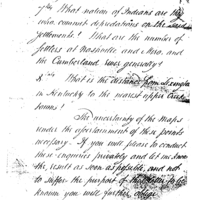 7th What nation of Indians are they
who commit depredations on the said
settlements? What are the number of
settlers at Nashville and Miro, and
the Cumberland river generally?
8th What is the distance from
in Kentucky to the nearest upper Creek
towns?
The uncertainty of the Maps
render the ascertainment of these points
necessary. If you will please to conduct
these enquiries privately and let me know
the result as soon as possible, and not
to suffer the purport of to be
known you will further oblige